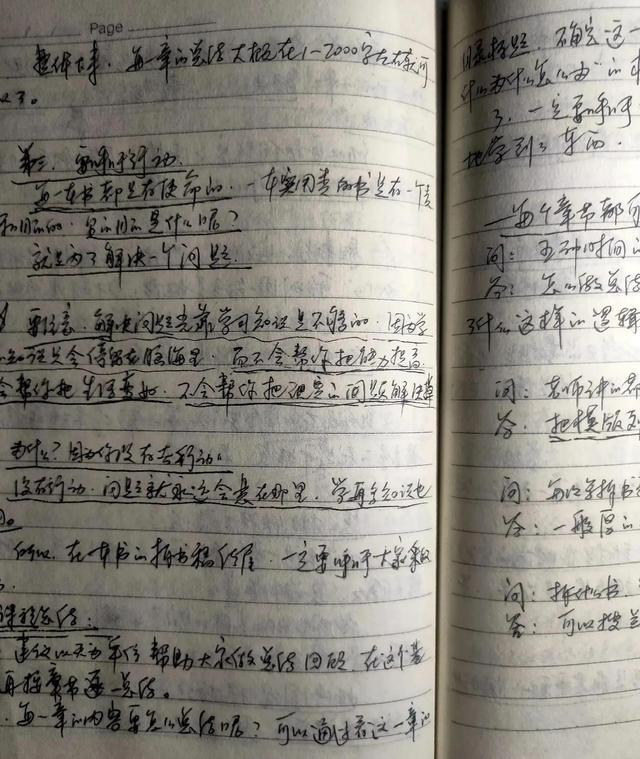 Page
整体下来，每一章的总结大概在1-2000字左右就可
以了。
第三、要呼吁行动
每一本书都是有使命的，一本实用类的书是有一个
和目的的，它的目的是什么呢？
就是为了解决一个问题。
要注意，解决问题光靠学习知识是不够的，因为学
知识只会停留在脑海里，而不会帮你把能力提高
会帮你把生活变好，不会帮你把现实的问题解决掉
为什么？因为你没有去行动。
没有行动，问题就永远会卖在那里，学再多知识也
所以，在一本书的拆书稿结尾，一定要呼吁大家采取
课程总结：
建议以天为单位帮助大家做总结回顾，在这个基
再按章节逐一总结。
每一章的内容要怎么总结呢？可以通过看这一章的
目录标题，确定这一
什么为什么怎么办”的
3、一定要呼吁
地学到了东西。
每个章节都
问：
答：怎么做总结
了什么这样的逻辑
问：老师讲的
答：把模版
问：每次拿拆书
答：一般是
问：拆什么书
答：可以找